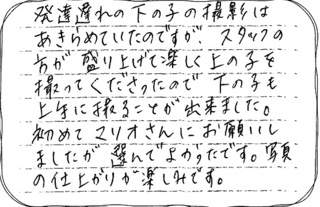 発達遅れの下の子の撮影は
あきらめていたのですが、スタッフの
方が盛り上げて楽しく上の子を
撮ってくださったので下の子も
上手に撮ることが出来ました。
初めてマリオさんにお願いし
ましたが選んでよかったです。写真
の仕上がりが楽しみです。